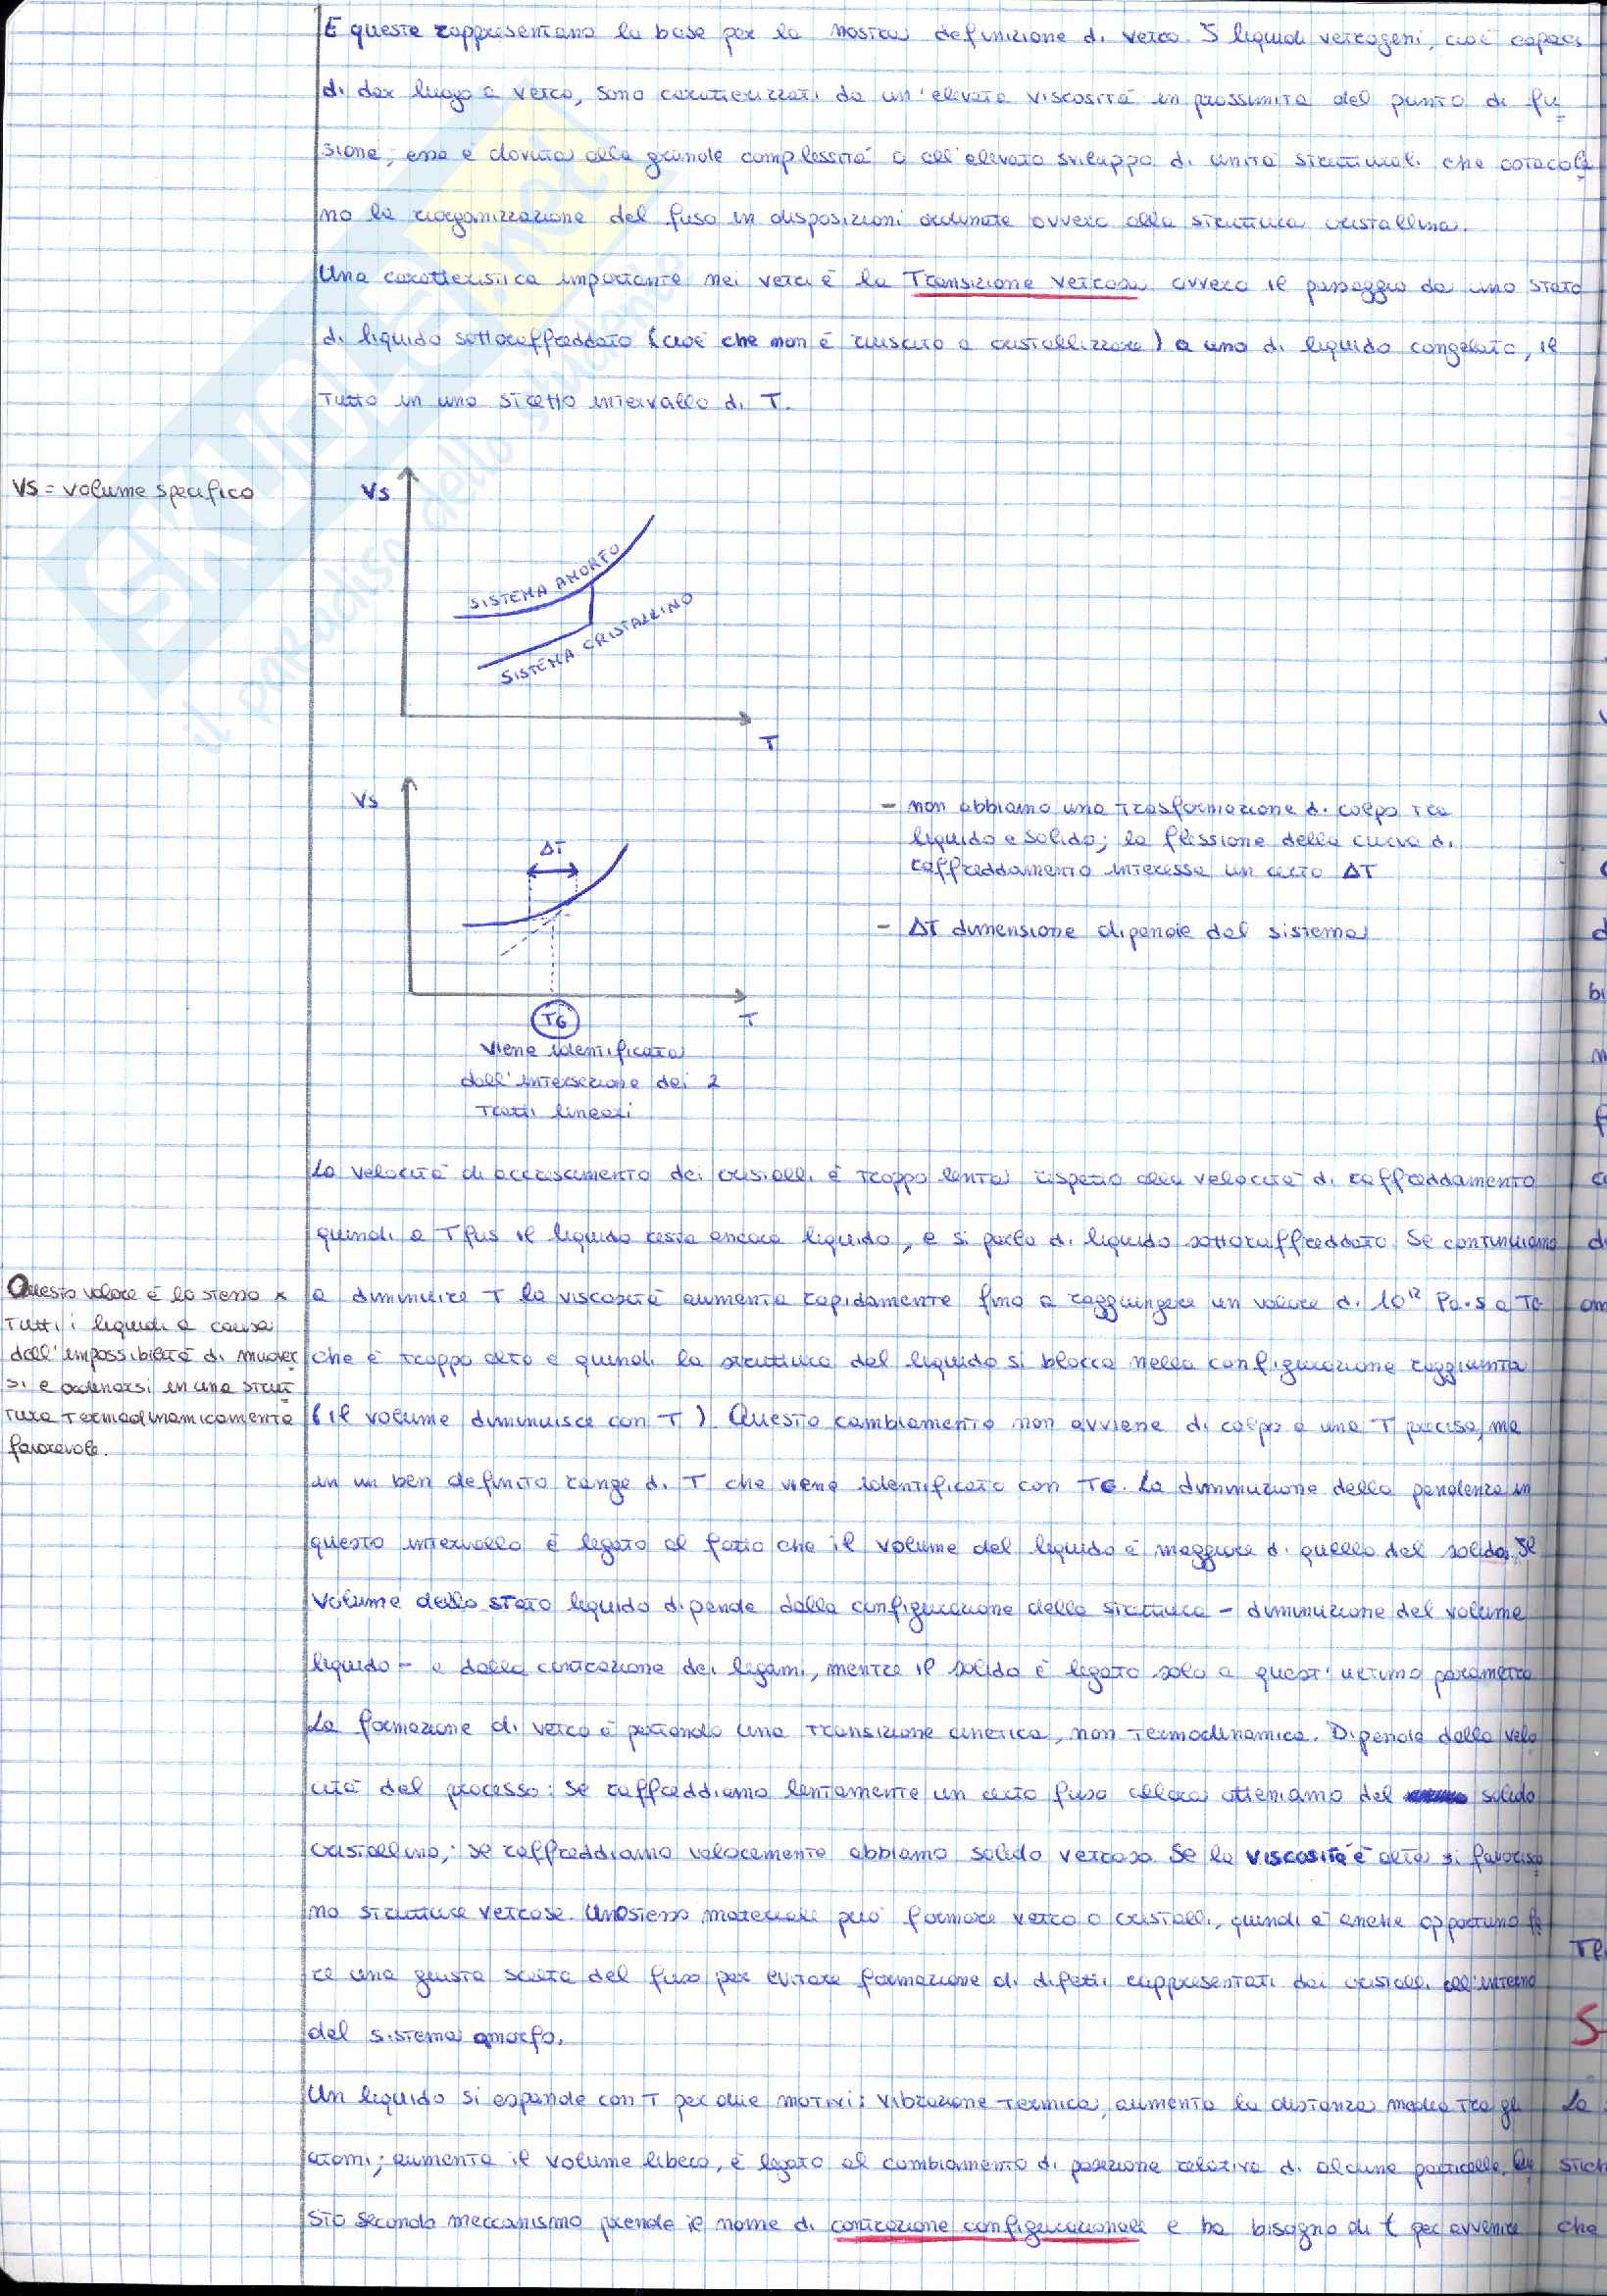 E queste rappresentano la base per la nostra definizione di vetro. I liquidi vetrogeni, cioè capaci
di dar luogo a vetro, sono caratterizzati da un'elevata viscosità in prossimità del punto di fu
sione; essa è dovuta alla grande complessità o all'elevato sviluppo di unità strutturali che ostacola
no la riorganizzazione del fuso in disposizioni ordinate ovvero alla struttura cristallina.
Una caratteristica importante nei vetri è la Transizione vetrosa ovvero il passaggio da uno stato
di liquido sottoraffreddato (cioè che non è riuscito a cristallizzare) a uno di liquido congelato, il
tutto in uno stretto intervallo di T.
Vs = volume specifico
Vs
SISTEMA AMORFO
SISTEMA CRISTALLINO
T
Vs
ΔT
TG
T
viene identificato
dall'intersezione dei 2
tratti lineari
- non abbiamo una trasformazione di colpo tra
liquido e solido; la flessione della curva di
raffreddamento interessa un certo ΔT
- ΔT dimensione dipende dal sistema
La velocità di accrescimento dei cristalli è troppo lenta rispetto alla velocità di raffreddamento
quindi a T fus il liquido resta ancora liquido, e si parla di liquido sottoraffreddato. Se continuiamo
a diminuire T la viscosità aumenta rapidamente fino a raggiungere un valore di 10¹² Pa·s a TG
che è troppo alto e quindi la struttura del liquido si blocca nella configurazione raggiunta
(il volume diminuisce con T). Questo cambiamento non avviene di colpo a una T precisa, ma
in un ben definito range di T che viene identificato con TG. La diminuzione della pendenza in
questo intervallo è legato al fatto che il volume del liquido è maggiore di quello del solido. Il
volume dello stato liquido dipende dalla configurazione della struttura - diminuzione del volume
liquido - e dalla contrazione dei legami, mentre il solido è legato solo a quest'ultimo parametro
La formazione di vetro è pertanto una transizione cinetica, non termodinamica. Dipende dalla velo
cità del processo: se raffreddiamo lentamente un certo fuso allora otteniamo del solido
cristallino; se raffreddiamo velocemente abbiamo solido vetroso. Se la viscosità è alta si favorisco
no strutture vetrose. Uno stesso materiale può formare vetro o cristalli, quindi è anche opportuno fa
re una giusta scelta del fuso per evitare formazione di difetti rappresentati dai cristalli all'interno
del sistema amorfo.
Un liquido si espande con T per due motivi: vibrazione termica, aumenta la distanza media tra gli
atomi; aumenta il volume libero, è legato al cambiamento di posizione relativa di alcune particelle. Que
sto secondo meccanismo prende il nome di contrazione configurazionale e ha bisogno di t per avvenire
Questo valore è lo stesso x
tutti i liquidi a causa
dell'impossibilità di muover
si e ordinarsi in una strut
tura termodinamicamente
favorevole.